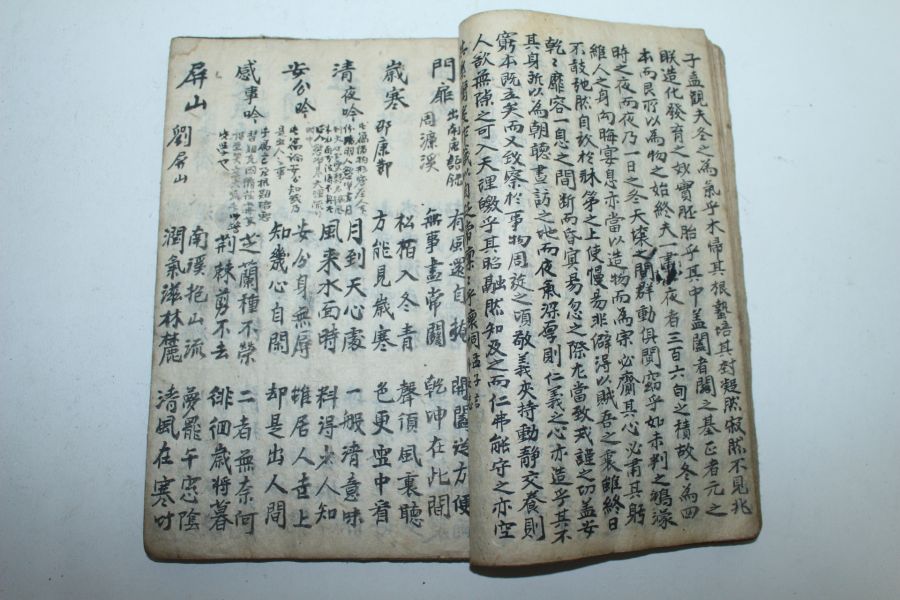 子盍觀夫冬之為氣乎木歸其根蟄培其封凝然寂然不見兆
朕造化發育之妙實胚胎乎其中盖闔者闢之基正者元之
本而艮所以為物之始終夫一晝夜者三百六旬之積故冬為四
時之夜而夜乃一日之冬天壤之間群動俱闃窈乎如未判之鴻濛
維人之身向晦宴息亦當以造物而為宗必齋其心必肅其躬
不敢弛然自放於牀第之上使慢易非僻得以賊吾之衷雖終日
乾乾靡容一息之間断而昏冥易忽之際尤當致戒謹之功盖安
其身所以為朝聽晝訪之地而夜氣深厚則仁義之心亦浩乎其不
窮本既立矣而又致察於事物周旋之頃敬義夾持動靜交養則
人欲無隙之可入天理皦乎其昭融然知及之而仁弗能守之亦空
門扉 周濂溪 有風還自掩 開闔從方便
無事晝常關 乾坤在此間
歲寒 邵康節 松栢入冬青 聲須風裏聽
方能見歲寒 色更雪中看
清夜吟 月到天心處 一般清意味
風來水面時 料得少人知
安分吟 安分身無辱 雖居人世上
知幾心自閑 却是出人間
感事吟 芝蘭種不榮 二者無奈何
荆棘剪不去 徘徊歲將暮
屏山 劉屏山 南溪抱山流 夢罷午窓陰
潤氣滋林麓 清風在寒竹